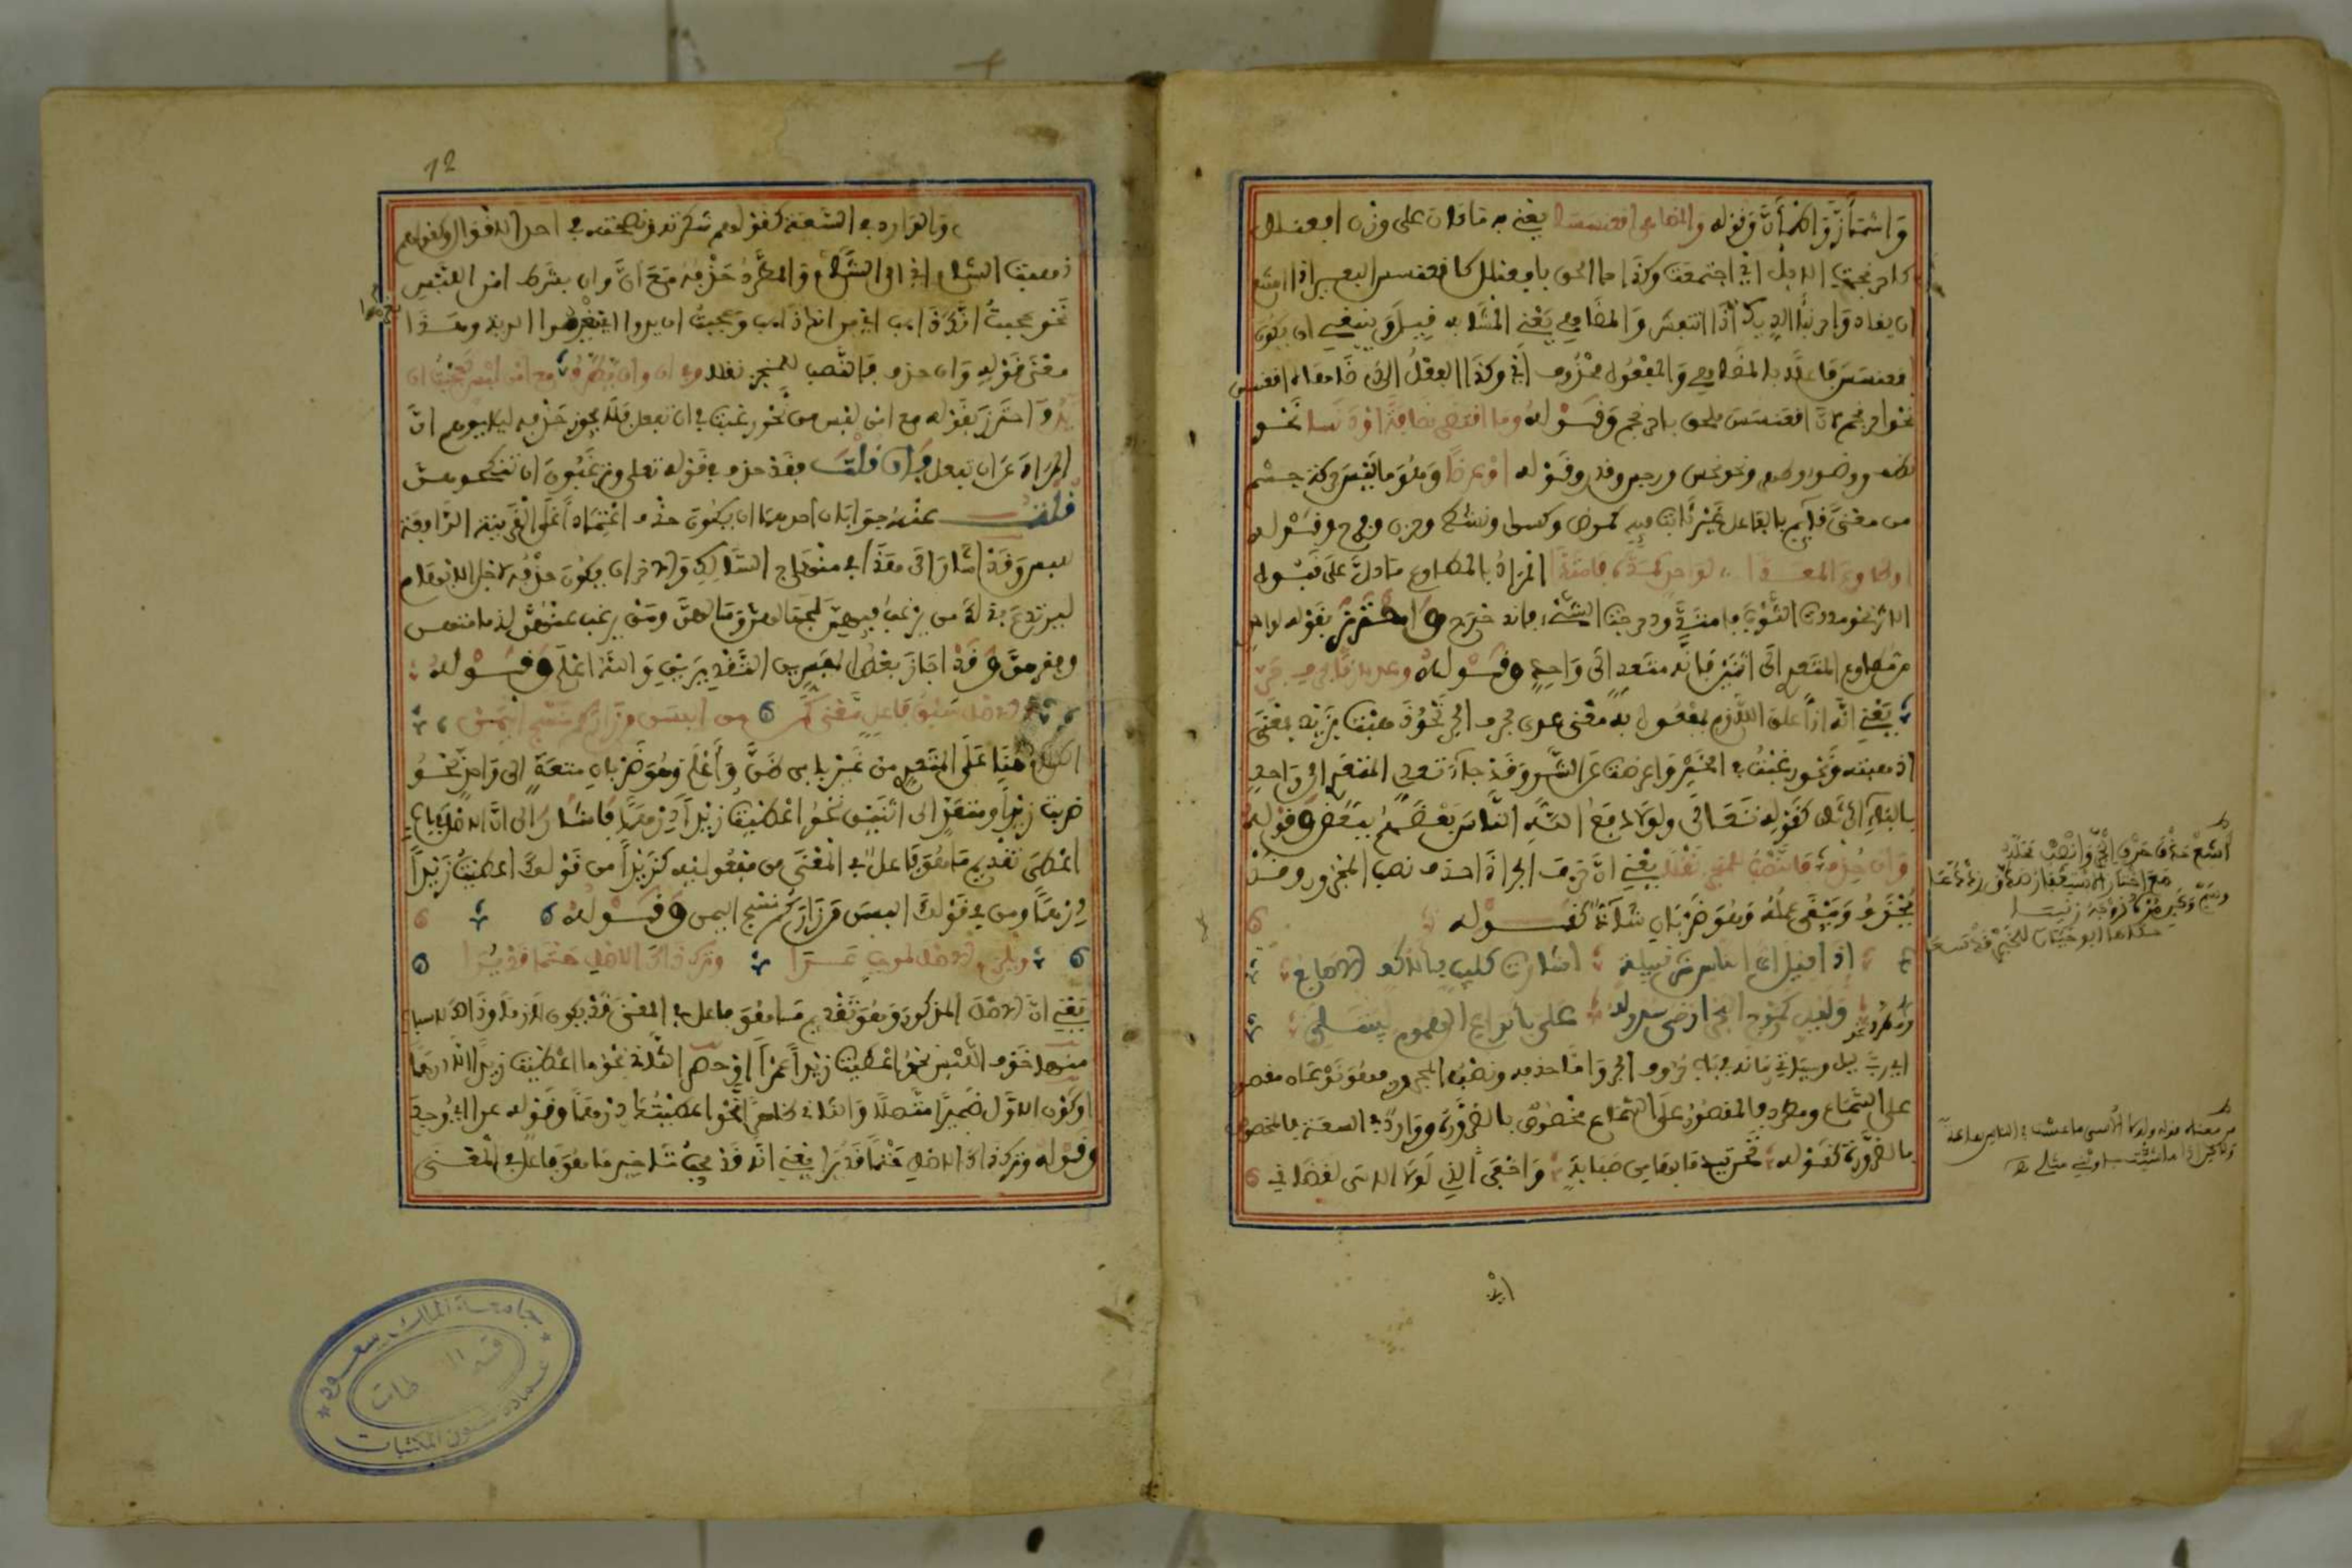 وَاشْمَأَزَّ وَاطْمَأَنَّ وَقوله وَالمضاهي اقعنسسا يعْني به مَا كان على وزن افعنلل
كاحرنجمت الابل اي اجتمعت وكذا ما الحق بافعنلل كاقعنسس البعير اذا امتنع
ان يقاد وَاحرنبا الديك اذا انتفش وَالمضاهي يَعْنِي المشَابه قِيل وَينبغي ان يكون
اقعنسَسَ فاعلا بالمضاهي وَالمفعُول محْذُوف اي وكذا الفعْلُ الذي ضَاهَاه اقعنسس
نحْو احرنجم لانَّ اقعنسَسَ ملحق باحرنجم وَقَوْلهُ وما اقتضى نظافةً اوْ دَنسا نحْو
نظف ووضوء وطهر ونحو نجس ورجس وقذر وقَوْله اوْ عرضا وَهُوَ مَا ليْسَ حركة جسْم
من معْنىً قايم بالفاعل غيْر ثابت فيه كمرض وكسل ونشط وحزن وفرح وقَوْله
اوطاوع المعدى لواحد كمدَّه فامتدَّا المرَادُ بالمطاوع مَا دلَّ على قبُول
الاثر نحو مددت الثوب فامتدَّ ودحرجت الشيء فتدحرج وَاحتَرز بقَوْله لواحد
من مطاوع المتعدي الى اثنين فانه متعد الى وَاحِدٍ وقَوْلهُ وعد لازما بحرف جَرِّ
يَعْني انَّه اذا علق اللازم بمفعُول به معْنى عدى بحرف الجر نَحْوُ ذهبت بزيد بمعْنى
اذهبته ونحْو رغبْتُ في الخيْر وَاعرضت عن الشَّر وَقد جاء تعدي المتعدي الى وَاحد
بالبَاء الى ثان كقوله تعَالى ولوْلا دفعُ اللهِ النَّاسَ بَعْضَهُمْ ببَعْض وقوْلهُ
وَان حُذِف فالنَّصْبُ للمنجر نَقْلا يعْني انَّ حَرف الجر اذا حذف نصب المجرور وقد
يُحْذفُ وَيَبْقَى عَملُهُ وَهُوَ ضَرْبان شاذ كقَوْله
اذا قيل ايُّ الناس شر قبيلة اشارت كليب بالاكف الاصابع
ومطرد نحو وَليل كمَوْج البحر ارخى سدوله عَلَيَّ بانواع الهموم ليبتلي
اي ربَّ ليل وسيَاتي بيَانه في باب حُرُوف الجر وَامَّا حذفه ونصْبُ المجرور فهو نوْعان مقصور
على السَّماع ومطرد فالمقصُورُ على السَّماع مخصُوصٌ بالضرُورَة ووَاردٌ في السعَة فالمخصوص
بالضَّرورَة كقَوْله تحن فتبدي ما بها من صَبَابةٍ وَاخْفي الذي لوْلا الاسَى لقضاني
وَالوَارد في السَّعَة كقَوْلهم شكرته ونصحته في احد الاقوَال وكقولهم
ذهبت الشام اي الى الشَّام وَالمطَّردُ حَذْفهُ مَعَ أنَّ وان بشرط امْن اللبْس
نَحْو عجبتُ انَّكَ ذاهب اي من انك ذاهب وَعجبتُ ان يدوا اي يغْرمُوا الدية وهَذا
معْنى قوْلِهِ وَان حذف فالنَّصب للمنجر نقلا وفي ان وان يطَّرِدُ مع امْن لبس كعجبْتُ ان
يَدُوا احترز بقَوْله مع امْن لبْس من نَحْو رغبت في ان تفعل فلا يجوز حَذْفه ليلا يوهم انَّ
المرَادَ عَن ان تفعل فَان قُلْت فقد حذف في قَوْله تعلى وترْغَبُونَ ان تنكحوهنَّ
قلتُ عنْهُ جوَابَان احدهمَا ان يكُون حذف اعْتمَادًا على الْقَرينَة الرَّافِعَة
للبس وَقدْ اشَارَ الى هَذَا في منْهَاج السَّالِك وَالاخر ان يكُون حذْفه لاجل الابْهام
ليرتدعَ بذلكَ من يرغب فيهنَّ لجمَالهنَّ وَمَالهنَّ ومَنْ يرغب عنْهُنَّ لدمامتهن
وفقرهنَّ وَقدْ اجَازَ بعْضُ المفسِّرين التقديرَيْنِ وَاللهُ اعْلَم وَقَوْلهُ
وَالاصْل سَبْقُ فَاعلٍ مَعْنىً كمَن من البسَن من زاركم نسْج اليمَنْ
الكلامُ هُنَا عَلَى المُتَعدي من غَيْر بابي ظنَّ وَأعْلَمَ وهُوَ ضَرْبان متعدٍّ الى وَاحدٍ نحْو
ضربت زيْدًا ومتعدٍّ الى اثنيْن نَحْوُ اعْطيْت زيْدًا دِرْهَمًا فاشار الى انَّ الاصْلَ في باب
اعْطَى تقْديم مَا هُوَ فَاعلٌ في المعْنَى من مفعُوليْه كزَيْدًا من قَوْلِك اعطيْتُ زَيْدًا
دِرْهمًا ومن في قَوْلك البسَن مَن زَارَكم نسْج اليمن وقَوْلهُ
ويلزم الاصْل لموجب عَرَا وترك ذاكَ الاصْل حَتْما قدْ يُرَا
يَعْني انَّ الاصْلَ المذكور وَهُوَ تَقْديم مَا هُوَ فاعل في المعْنى قدْ يكون لازمًا وَذَلك لاسباب
منهَا خَوْف اللبْس نحْوُ اعْطيْت زيْدًا عَمْرًا اوْ حصر الثَّاني نَحْوُ مَا اعْطيْت زيدًا الا درهَمًا
اوكوْن الاوَّل ضَميرًا متَّصلا وَالثَّاني ظاهرًا نَحْو اعطيْتُكَ دِرْهمًا وقوْله عرا اي وُجد
وقَوْله وترك ذاك الاصْلِ حَتْمًا قد يُرَا يَعْنِي انَّه قدْ يجبُ تَاخير مَا هُوَ فاعل في المعْنى
12
جامعة الملك سعود
عمادة شئون المكتبات